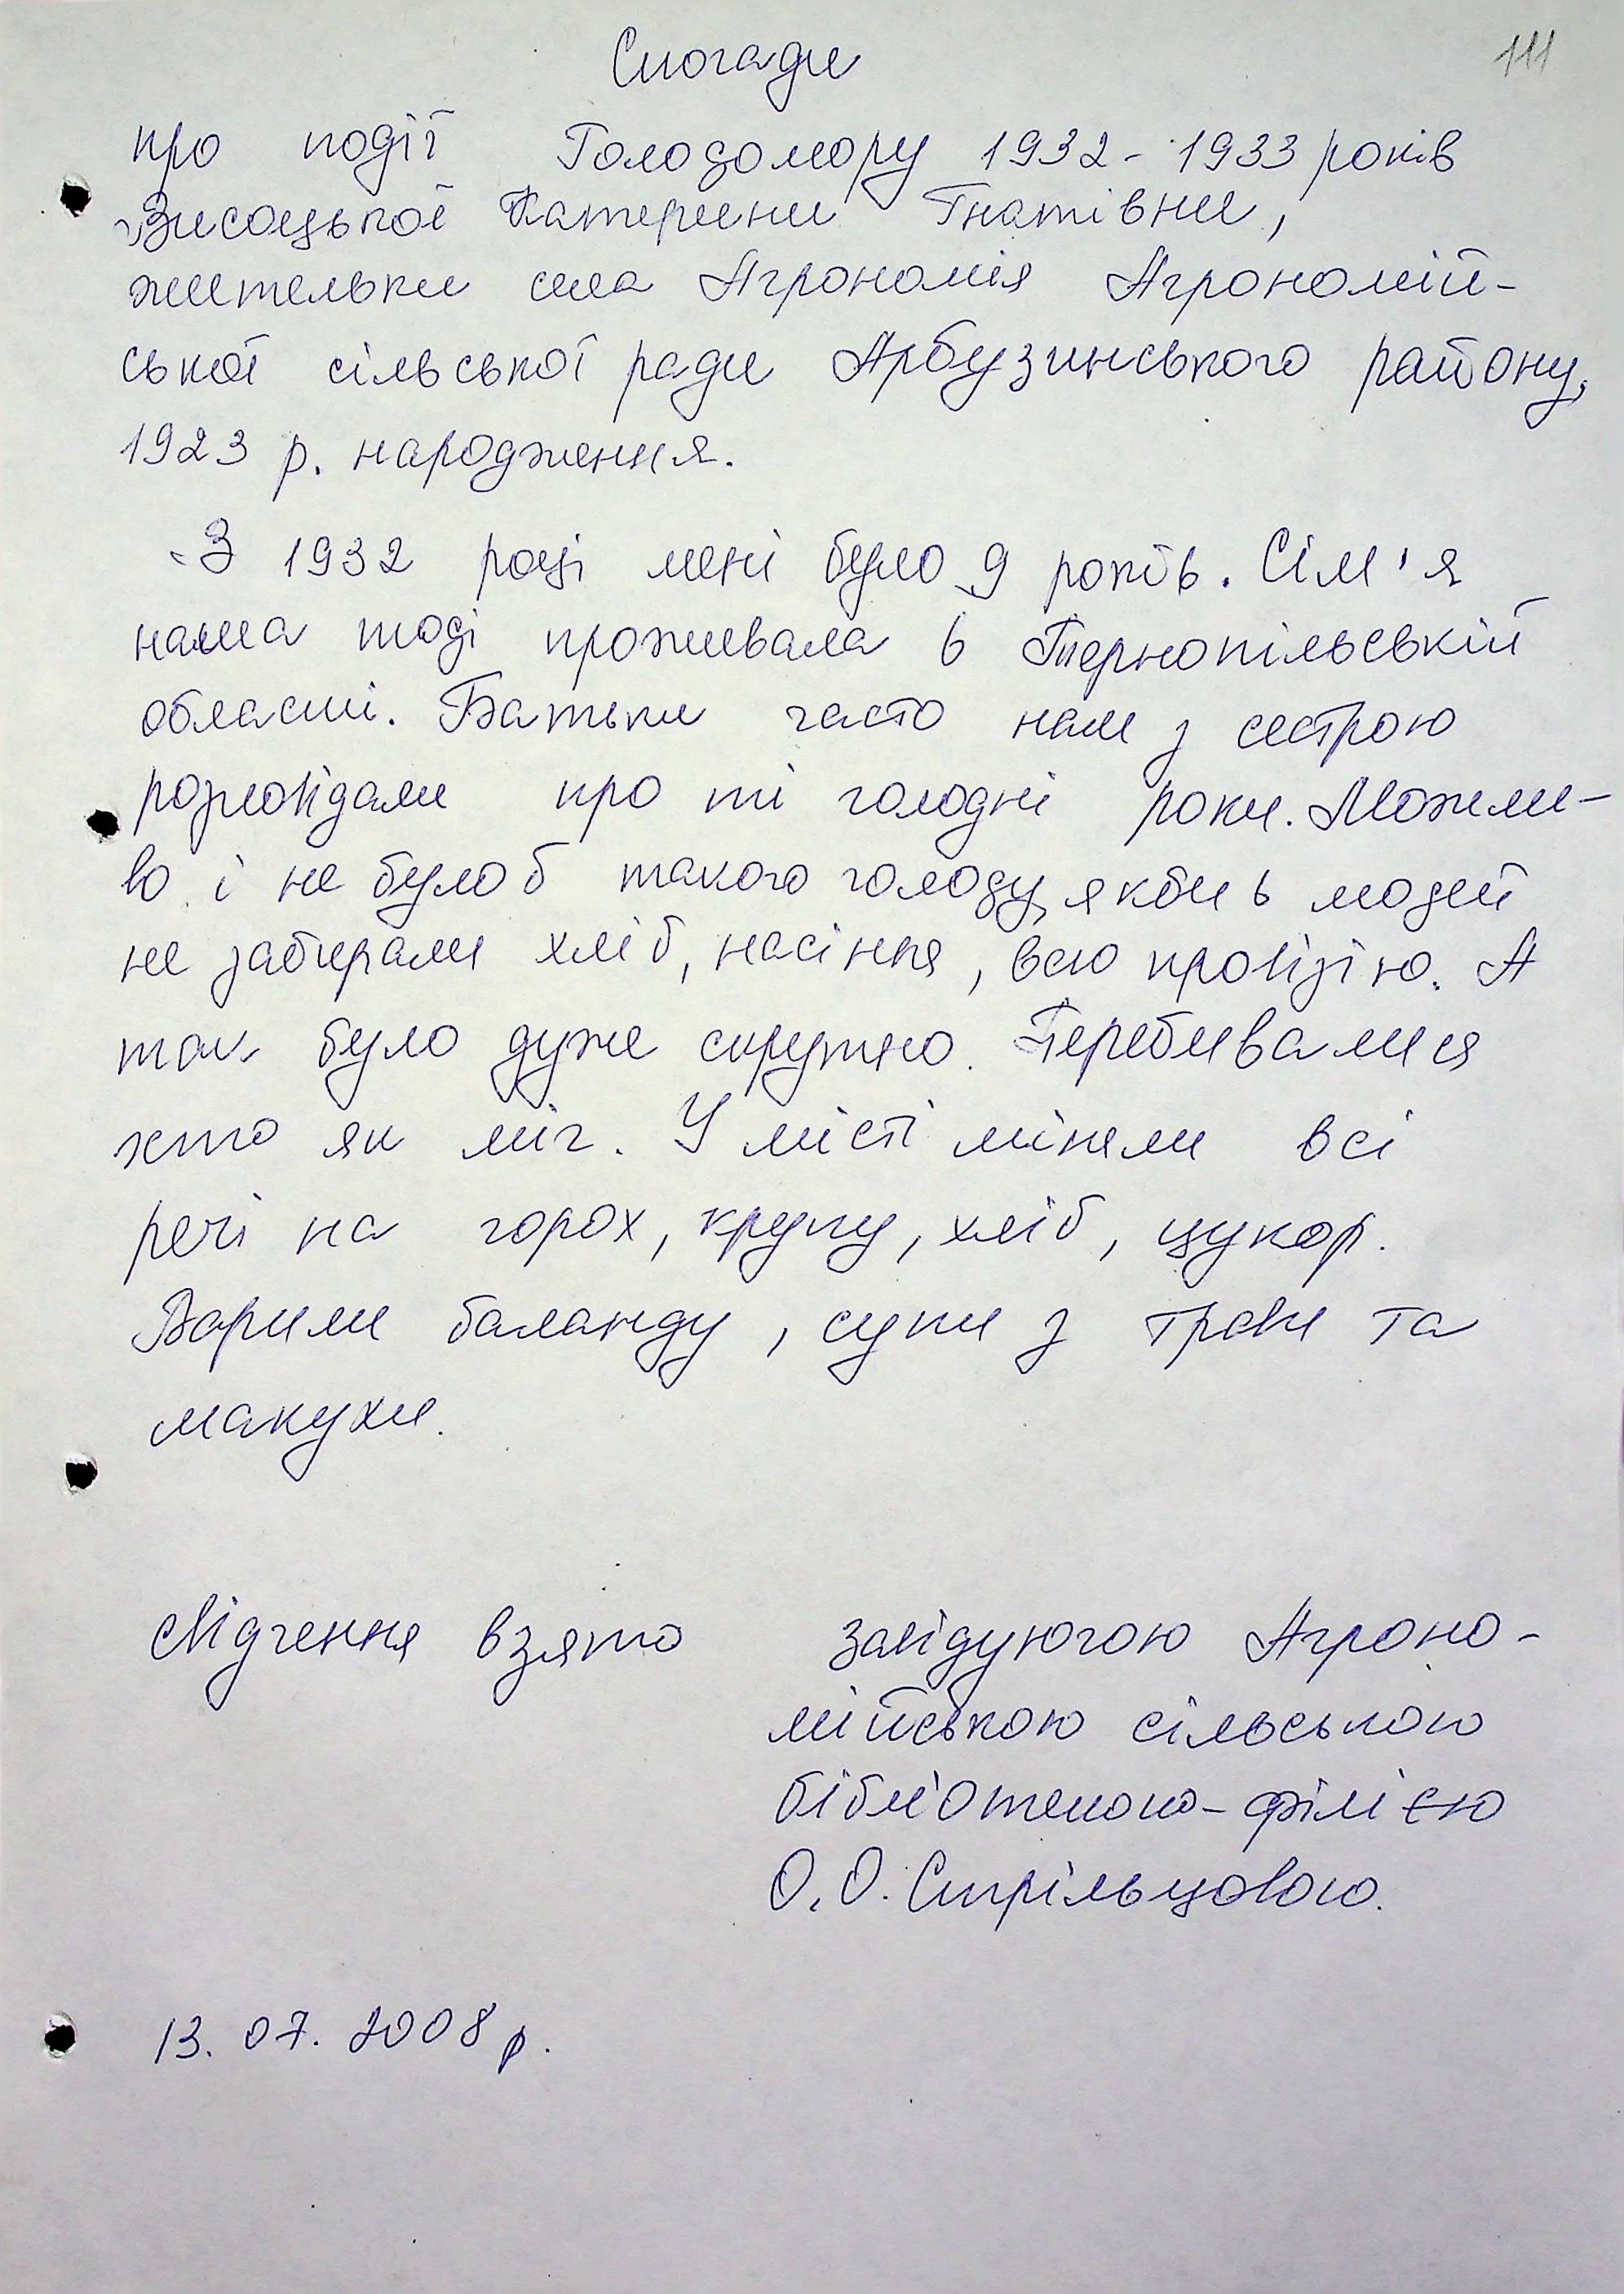 111
Спогади
про події Голодомору 1932-1933 років
Висоцької Катерини Гнатівни,
жительки села Агрономія Агрономій-
ської сільської ради Арбузинського району,
1923 р. народження.
В 1932 році мені було 9 років. Сім'я
наша тоді проживала в Тернопільській
області. Батьки часто нам з сестрою
розповідали про ті голодні роки. Можли-
во і не було б такого голоду, якби в людей
не забирали хліб, насіння, всю провізію. А
так було дуже скрутно. Перебивалися
хто як міг. У місті міняли всі
речі на горох, крупу, хліб, цукор.
Варили баланду, супи з трави та
макухи.
Свідчення взято завідуючою Агроно-
мійською сільською
бібліотекою-філією
О.О. Стрільцовою.
13.07.2008 р.